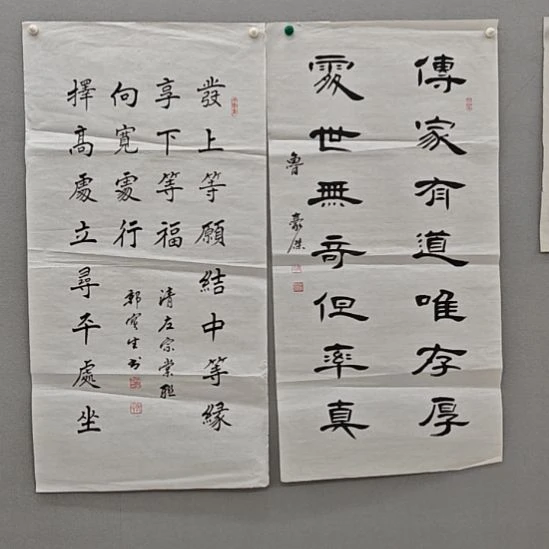 傳家有道唯存厚
處世無奇但率真
魯豪傑
發上等願結中等緣
享下等福
擇高處立尋平處坐
向寬處行
清左宗棠联
郭宝生书